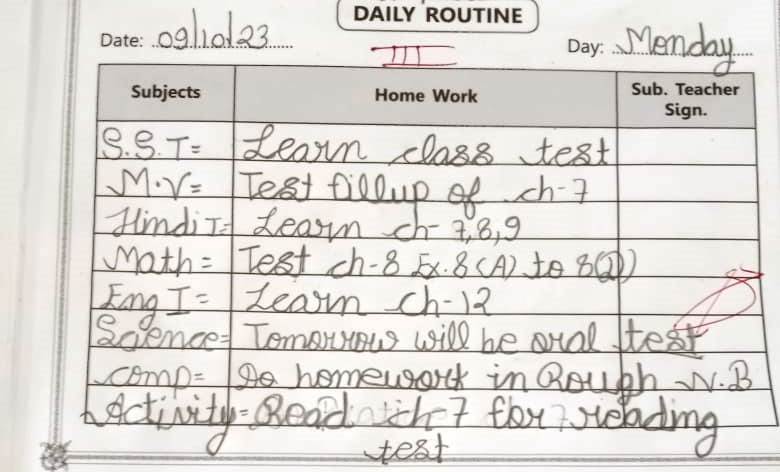 DAILY ROUTINE
Date: 09/10/23 Day: Monday
III
Subjects Home Work Sub. Teacher Sign.
S.S.T= Learn class test
M.V= Test fillup of ch-7
Hindi I= Learn ch-7,8,9
Math= Test ch-8 Ex.8(A) to 8(D)
Eng I= Learn ch-12
Science= Tomorrow will be oral test
comp= Do homework in Rough N.B
Activity= Read ch-7 for reading
test